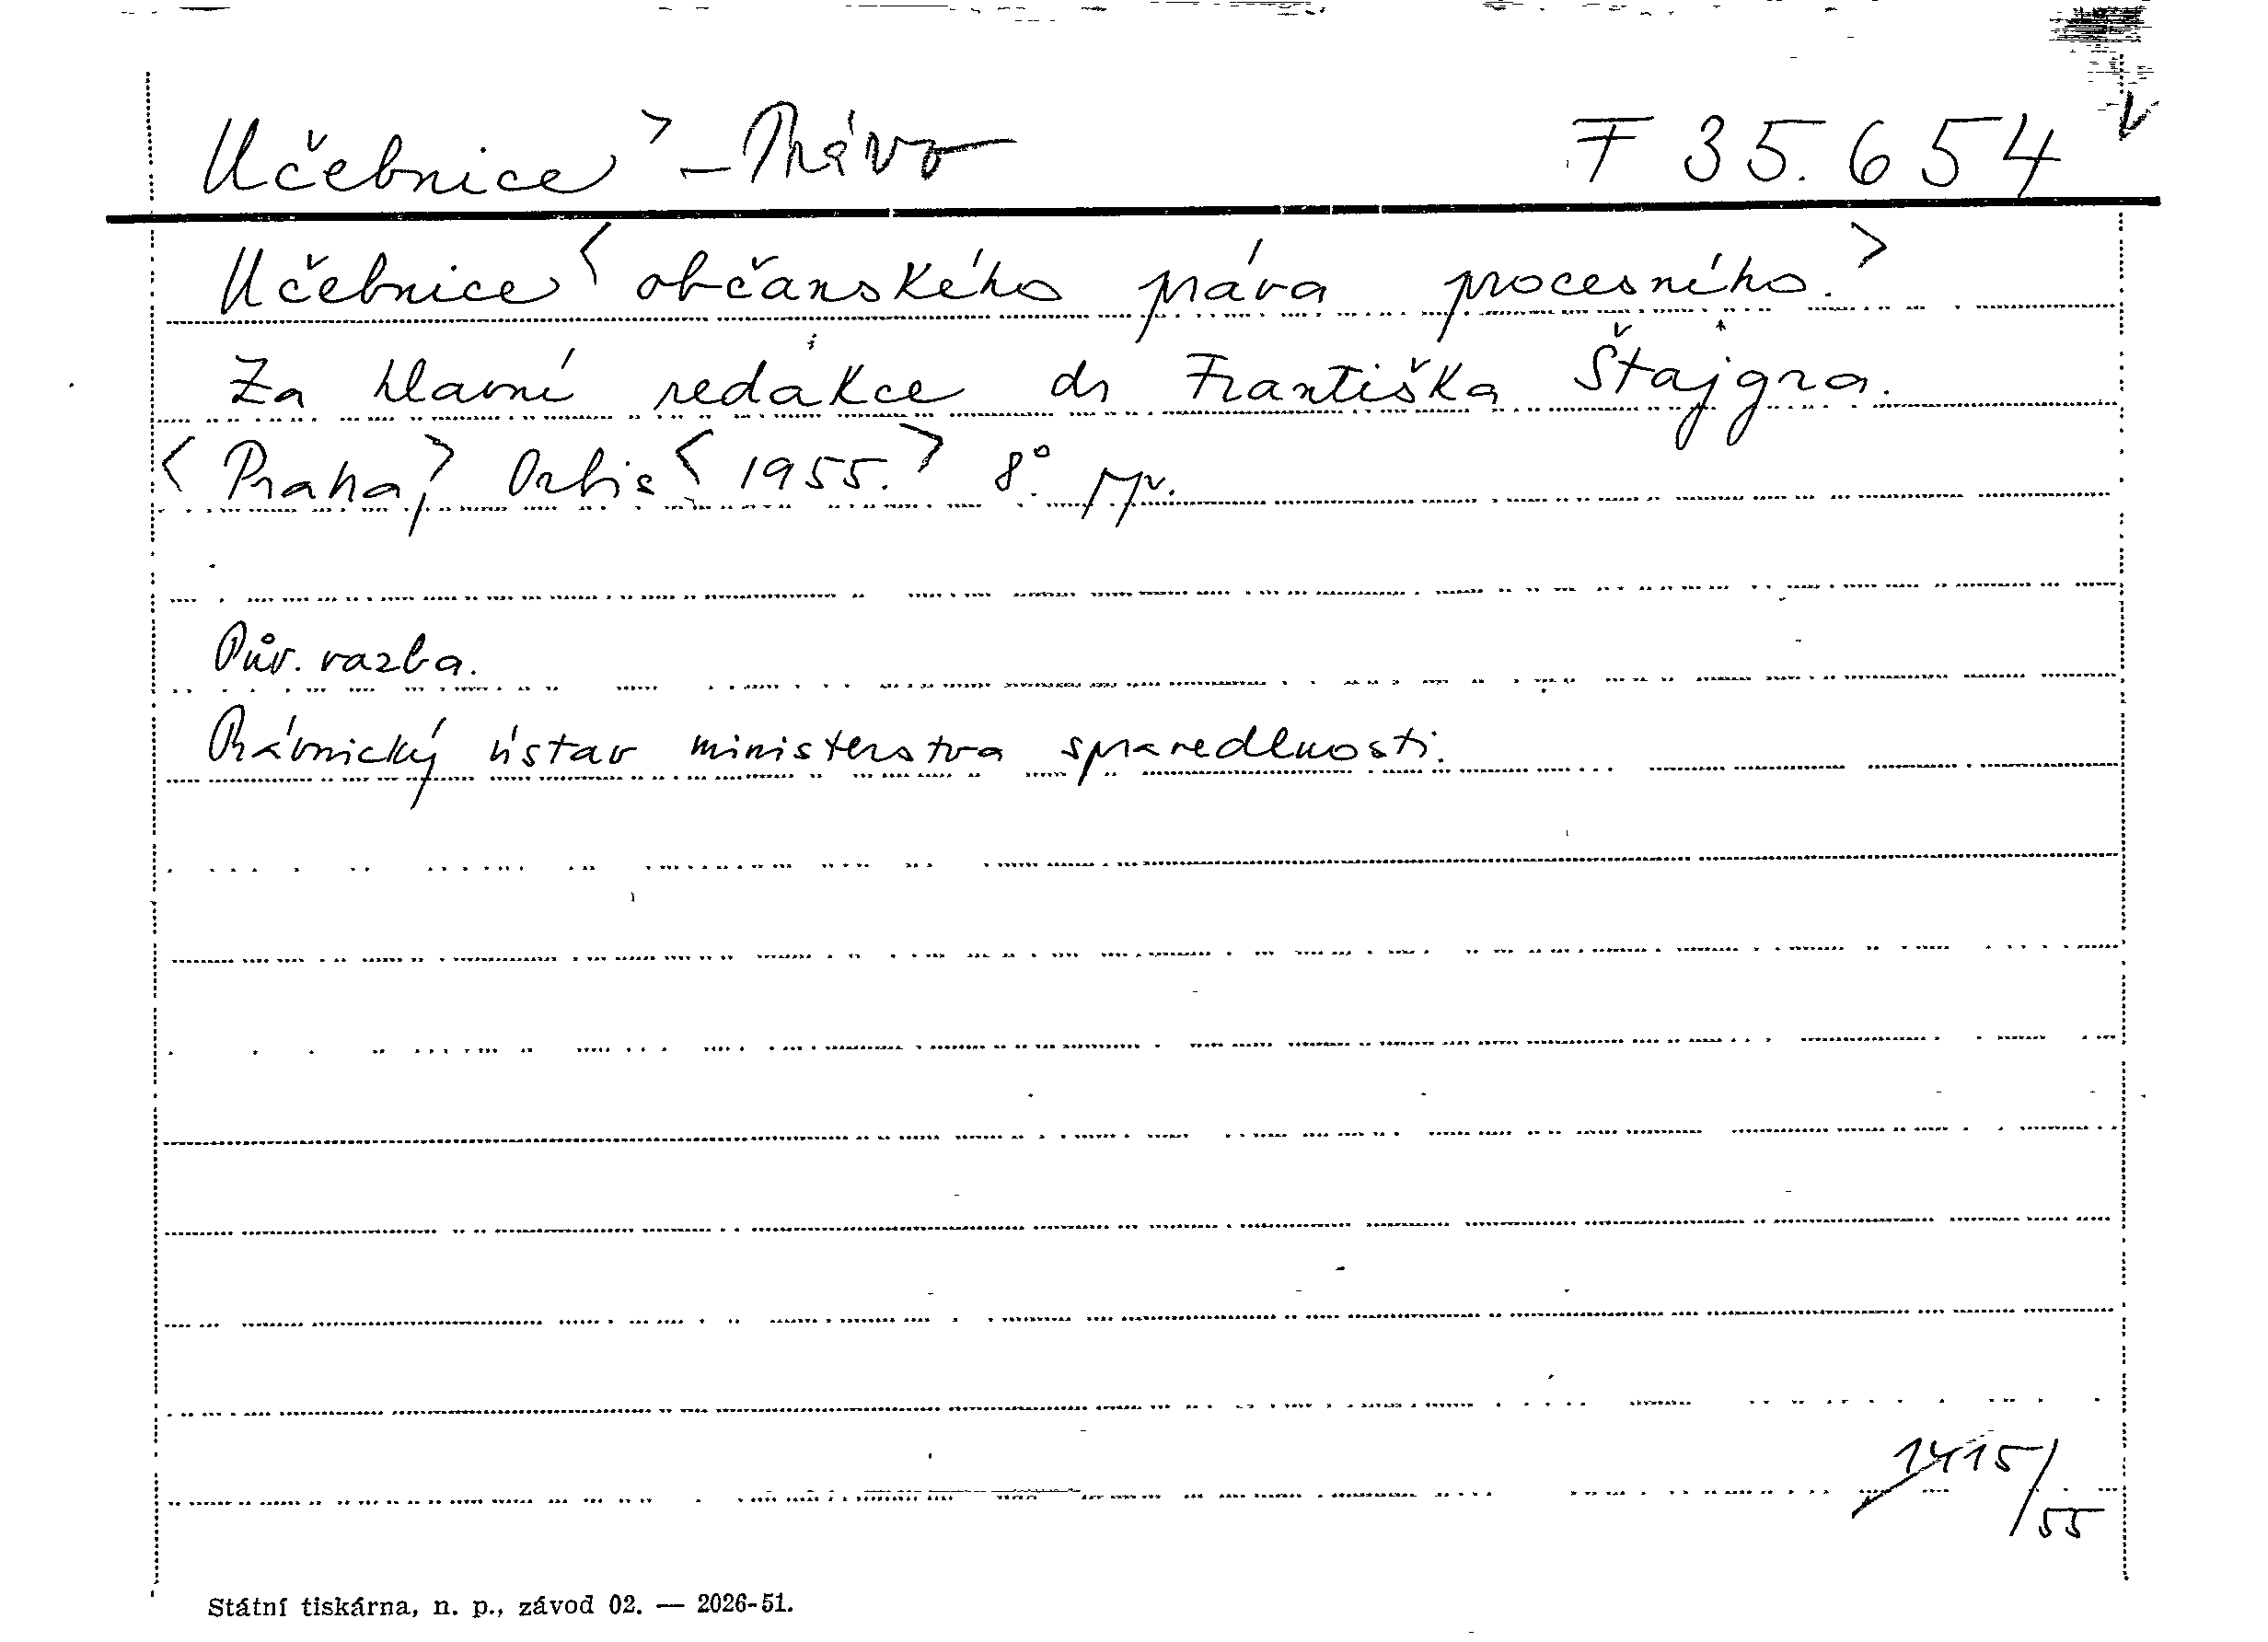 Učebnice > - Právo F 35.654 v
Učebnice < občanského práva procesního. >
Za hlavní redakce dr Františka Štajgra.
< Praha, > Orbis < 1955. > 8°
Pův. vazba.
Právnický ústav ministerstva spravedlnosti.
1415/55
Státní tiskárna, n. p., závod 02. — 2026-51.